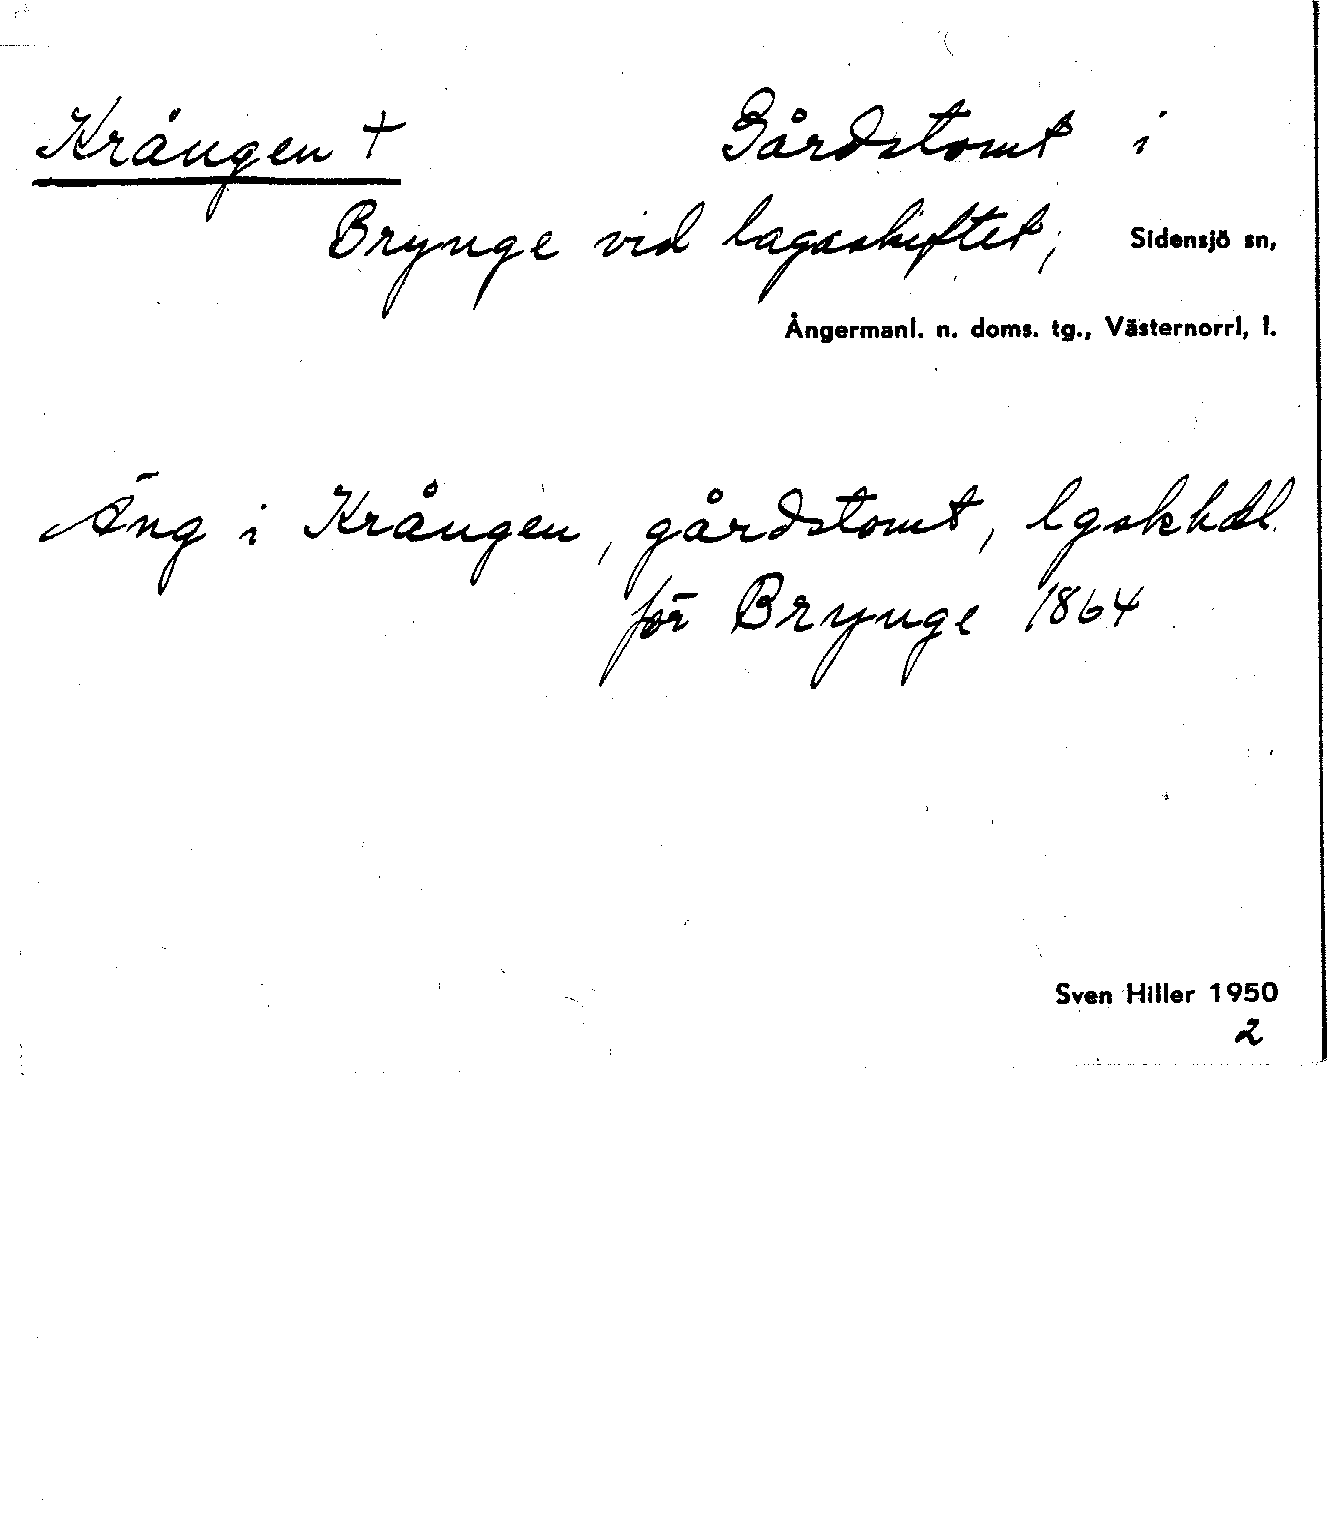 Krången + Gårdstomt i
Brynge vid lagaskiftet, Sidensjö sn,
Ångermanl. n. doms. tg., Västernorrl, l.
Äng i Krången, gårdstomt, lgskhdl.
för Brynge 1864
Sven Hiller 1950
2